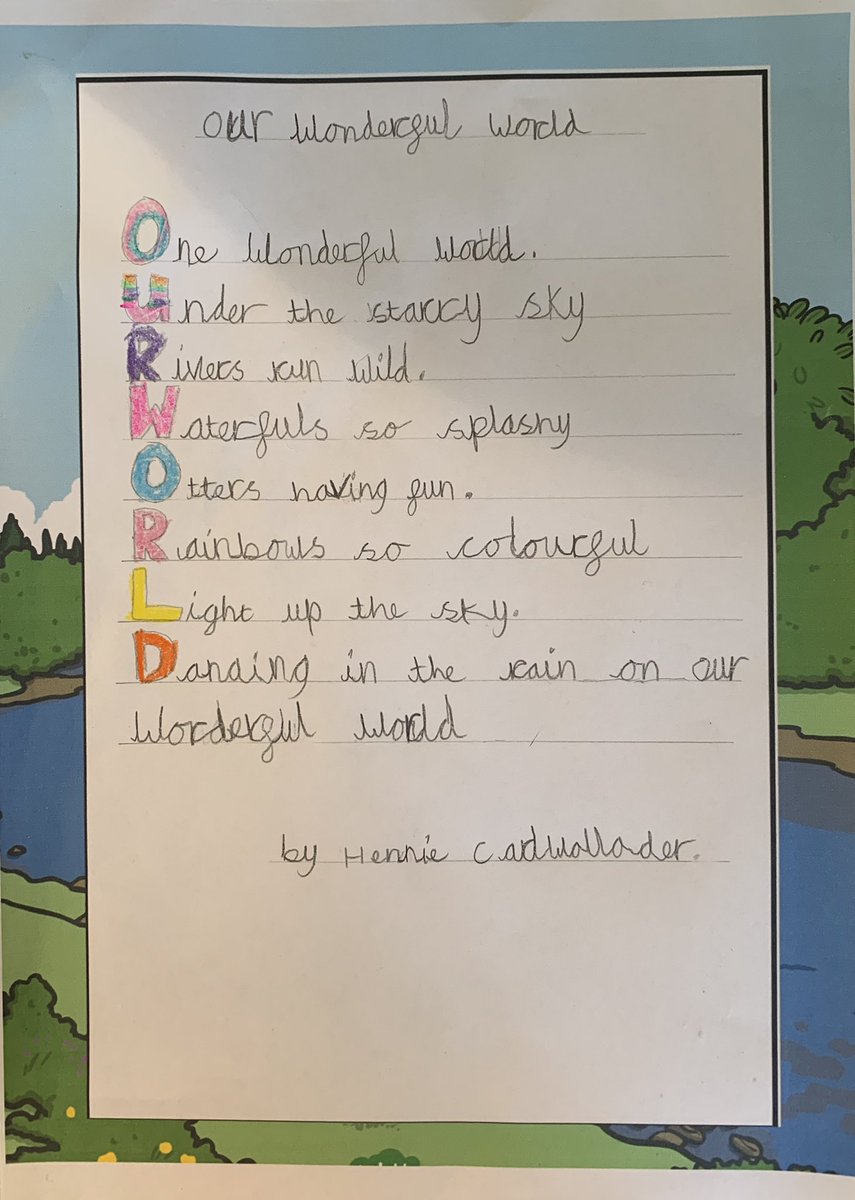 our wonderful world
One wonderful world.
Under the starry sky
Rivers run wild.
Waterfuls so splashy
Otters having fun.
Rainbows so colourful
Light up the sky.
Dancing in the rain on our
Worderful world
by Hennie Cadwallader.